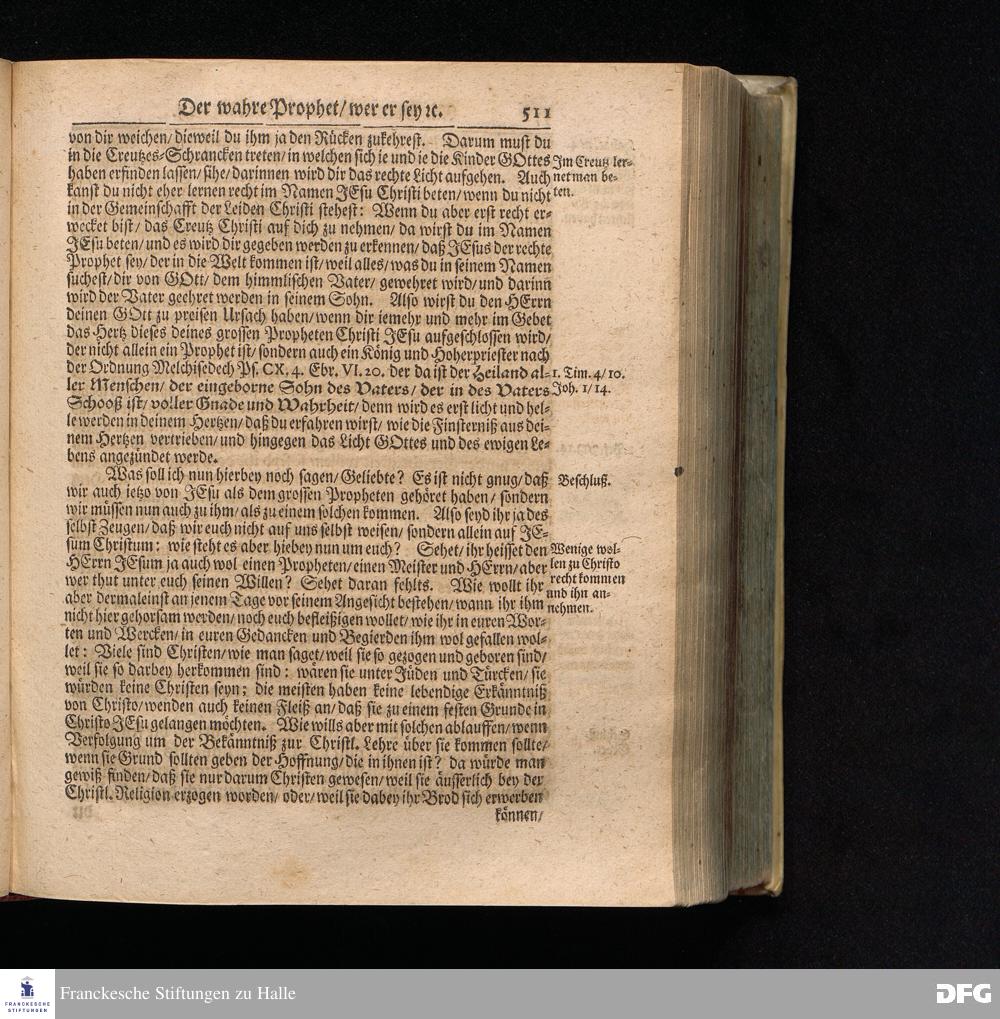 Der wahre Prophet/ wer er sey ꝛc. 511
von dir weichen/ dieweil du ihm ja den Rücken zukehrest. Darum must du
in die Creutzes-Schrancken treten/ in welchen sich ie und ie die Kinder GOttes
haben erfinden lassen/ sihe/ darinnen wird dir das rechte Licht aufgehen. Auch
kanst du nicht eher lernen recht im Namen JEsu Christi beten/ wenn du nicht
in der Gemeinschafft der Leiden Christi stehest: Wenn du aber erst recht er-
wecket bist/ das Creutz Christi auf dich zu nehmen/ da wirst du im Namen
JEsu beten/ und es wird dir gegeben werden zu erkennen/ daß JEsus der rechte
Prophet sey/ der in die Welt kommen ist/ weil alles/ was du in seinem Namen
suchest/ dir von GOtt/ dem himmlischen Vater/ gewehret wird/ und darinn
wird der Vater geehret werden in seinem Sohn. Also wirst du den HErrn
deinen GOtt zu preisen Ursach haben/ wenn dir iemehr und mehr im Gebet
das Hertz dieses deines grossen Propheten Christi JEsu aufgeschlossen wird/
der nicht allein ein Prophet ist/ sondern auch ein König und Hoherpriester nach
der Ordnung Melchisedech Ps. CX, 4. Ebr. VI. 20. der da ist der Heiland al-
ler Menschen/ der eingeborne Sohn des Vaters/ der in des Vaters
Schooß ist/ voller Gnade und Wahrheit/ denn wird es erst licht und hel-
le werden in deinem Hertzen/ daß du erfahren wirst/ wie die Finsterniß aus dei-
nem Hertzen vertrieben/ und hingegen das Licht GOttes und des ewigen Le-
bens angezündet werde.
Was soll ich nun hierbey noch sagen/ Geliebte? Es ist nicht gnug/ daß
wir auch ietzo von JEsu als dem grossen Propheten gehöret haben/ sondern
wir müssen nun auch zu ihm/ als zu einem solchen kommen. Also seyd ihr ja des
selbst Zeugen/ daß wir euch nicht auf uns selbst weisen/ sondern allein auf JE-
sum Christum: wie steht es aber hiebey nun um euch? Sehet/ ihr heisset den
HErrn JEsum ja auch wol einen Propheten/ einen Meister und HErrn/ aber
wer thut unter euch seinen Willen? Sehet daran fehlts. Wie wollt ihr
aber dermaleinst an jenem Tage vor seinem Angesicht bestehen/ wann ihr ihm
nicht hier gehorsam werden/ noch euch befleißigen wollet/ wie ihr in euren Wor-
ten und Wercken/ in euren Gedancken und Begierden ihm wol gefallen wol-
let: Viele sind Christen/ wie man saget/ weil sie so gezogen und geboren sind/
weil sie so darbey herkommen sind: wären sie unter Jüden und Türcken/ sie
würden keine Christen seyn; die meisten haben keine lebendige Erkänntniß
von Christo/ wenden auch keinen Fleiß an/ daß sie zu einem festen Grunde in
Christo JEsu gelangen möchten. Wie wills aber mit solchen ablauffen/ wenn
Verfolgung um der Bekänntniß zur Christl. Lehre über sie kommen sollte/
wenn sie Grund sollten geben der Hoffnung/ die in ihnen ist? da würde man
gewiß finden/ daß sie nur darum Christen gewesen/ weil sie äusserlich bey der
Christl. Religion erzogen worden/ oder/ weil sie dabey ihr Brod sich erwerben
können/
Im Creutz ler-
net man be-
ten.
1. Tim. 4/10.
Joh. 1/14.
Beschluß.
Wenige wol-
len zu Christo
recht kommen
und ihn an-
nehmen.
FRANCKESCHE
STIFTUNGEN
Franckesche Stiftungen zu Halle
DFG